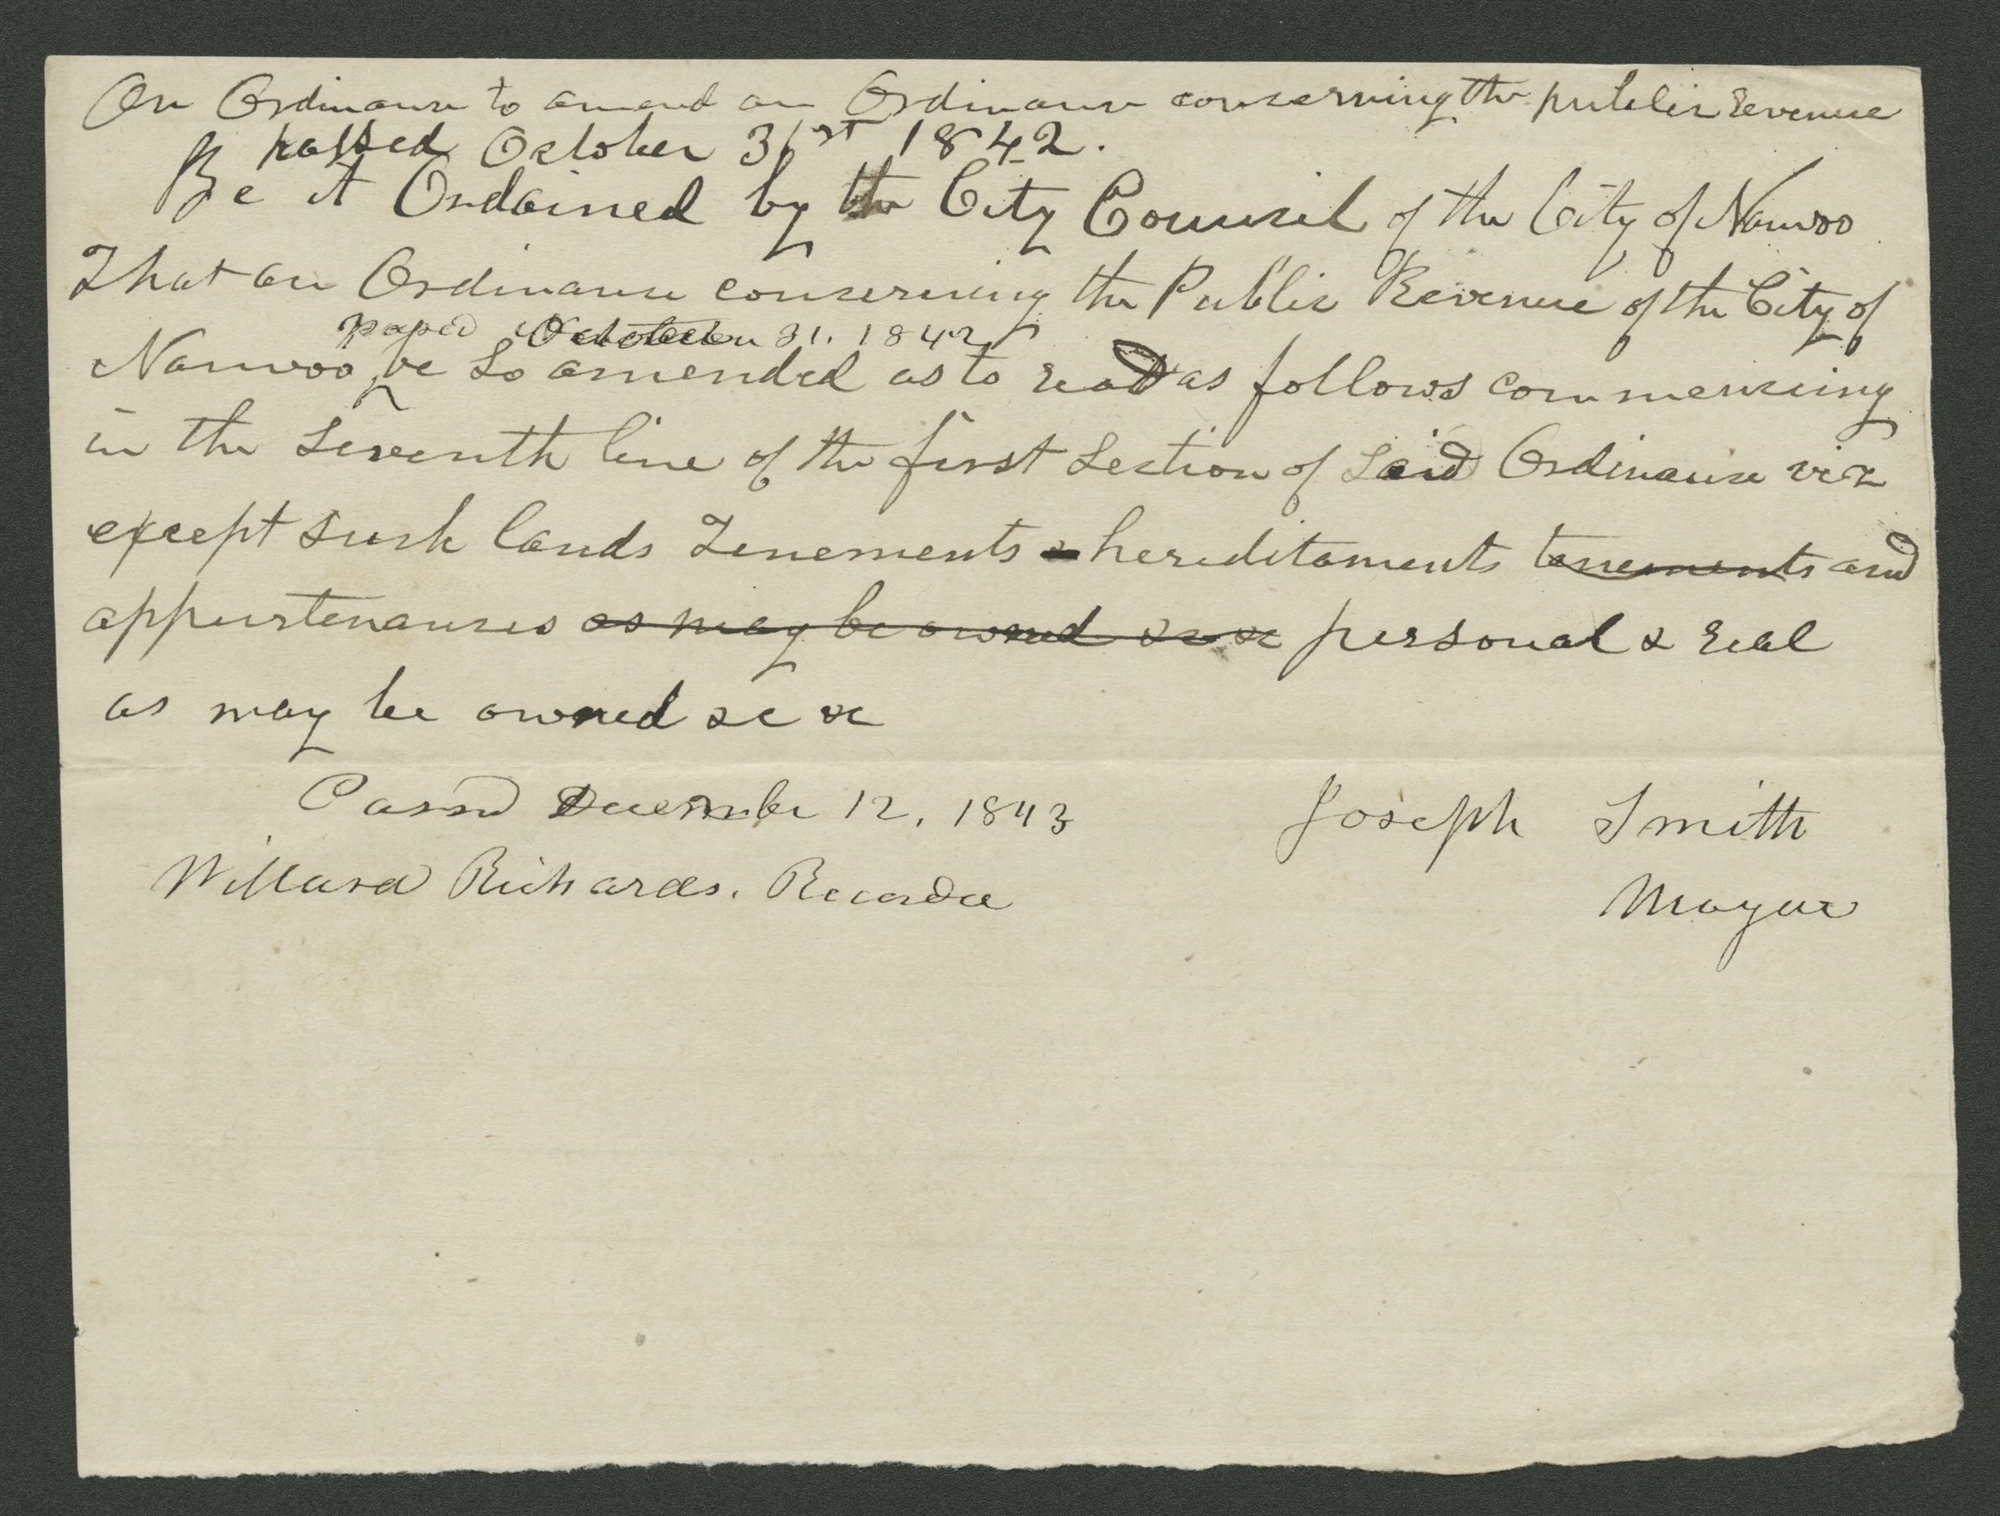 An Ordinance to amend an Ordinance concerning the public Revenue
passed October 31st 1842.
Be it Ordained by the City Council of the City of Nauvoo
That an Ordinance concerning the Public Revenue of the City of
passed October 31. 1842
Nauvoo, be so amended as to read as follows commencing
in the Seventh line of the first Section of said Ordinance viz
except such lands Tenements & hereditaments tenements and
appurtenances as may be owned &c &c personal & real
as may be owned &c &c
Passed December 12, 1843
Joseph Smith
Willard Richards. Recorder
Mayor